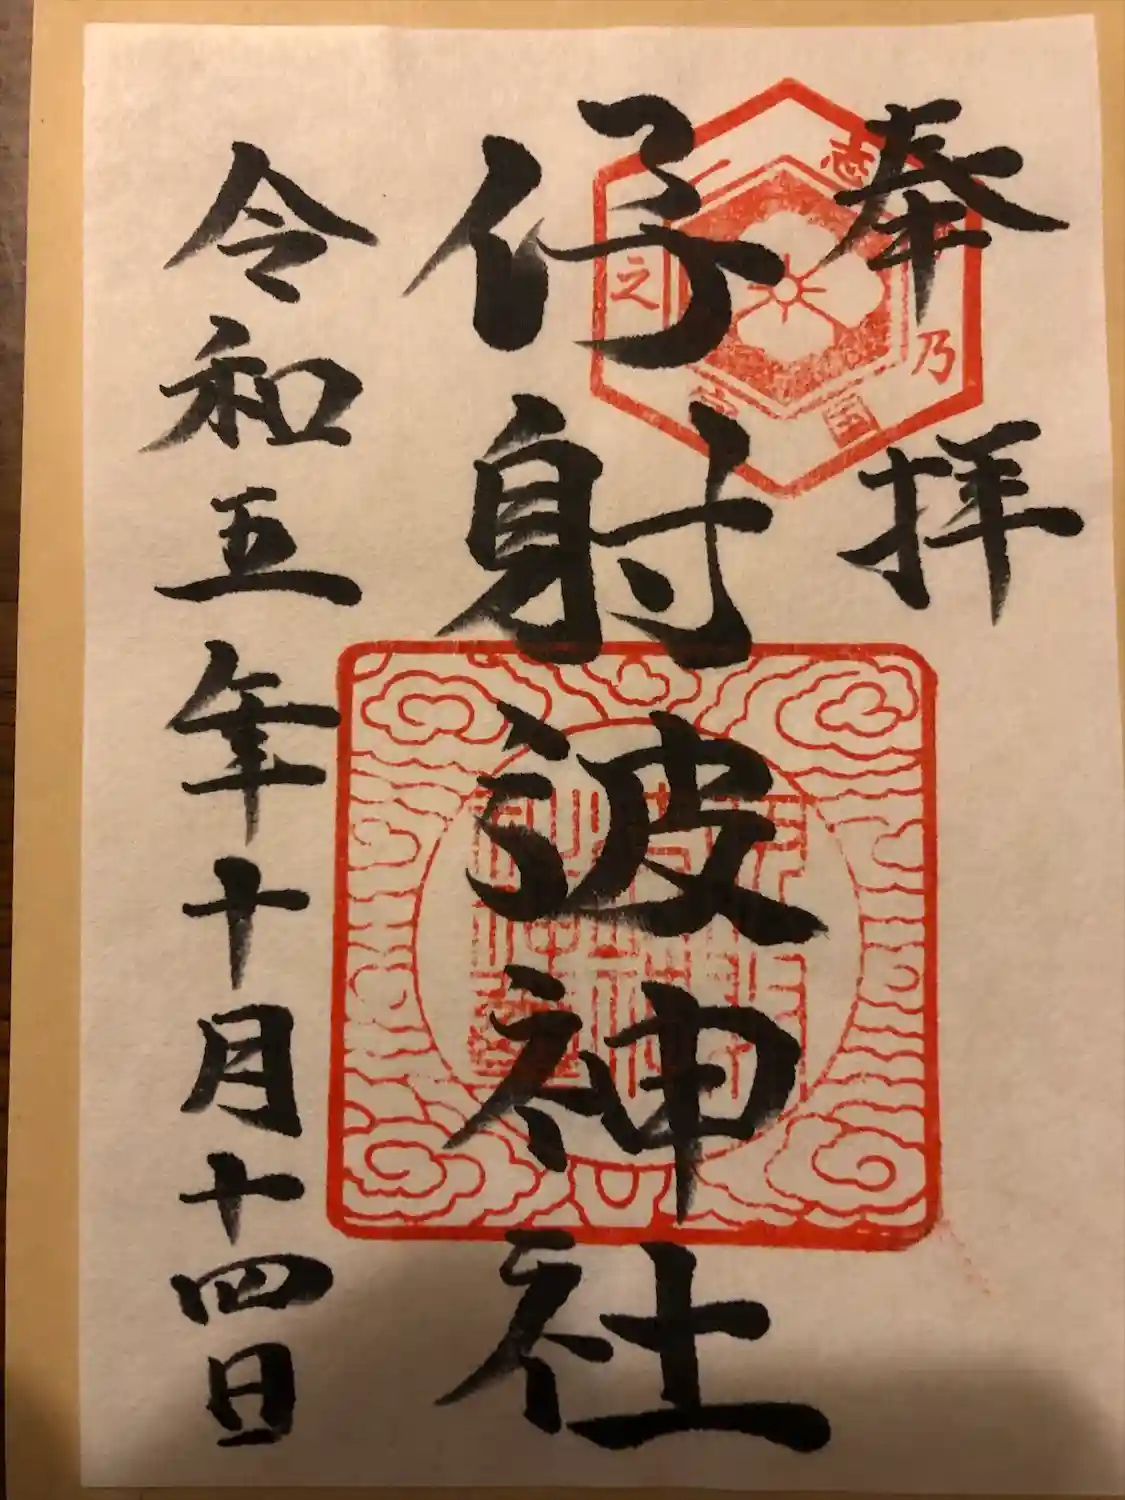 奉拝
伊射波神社
令和五年十月十四日
志
乃
国
之